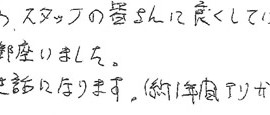 、スタッフの皆さんに良くして
御座いました。
話になります。(約1年間アリが